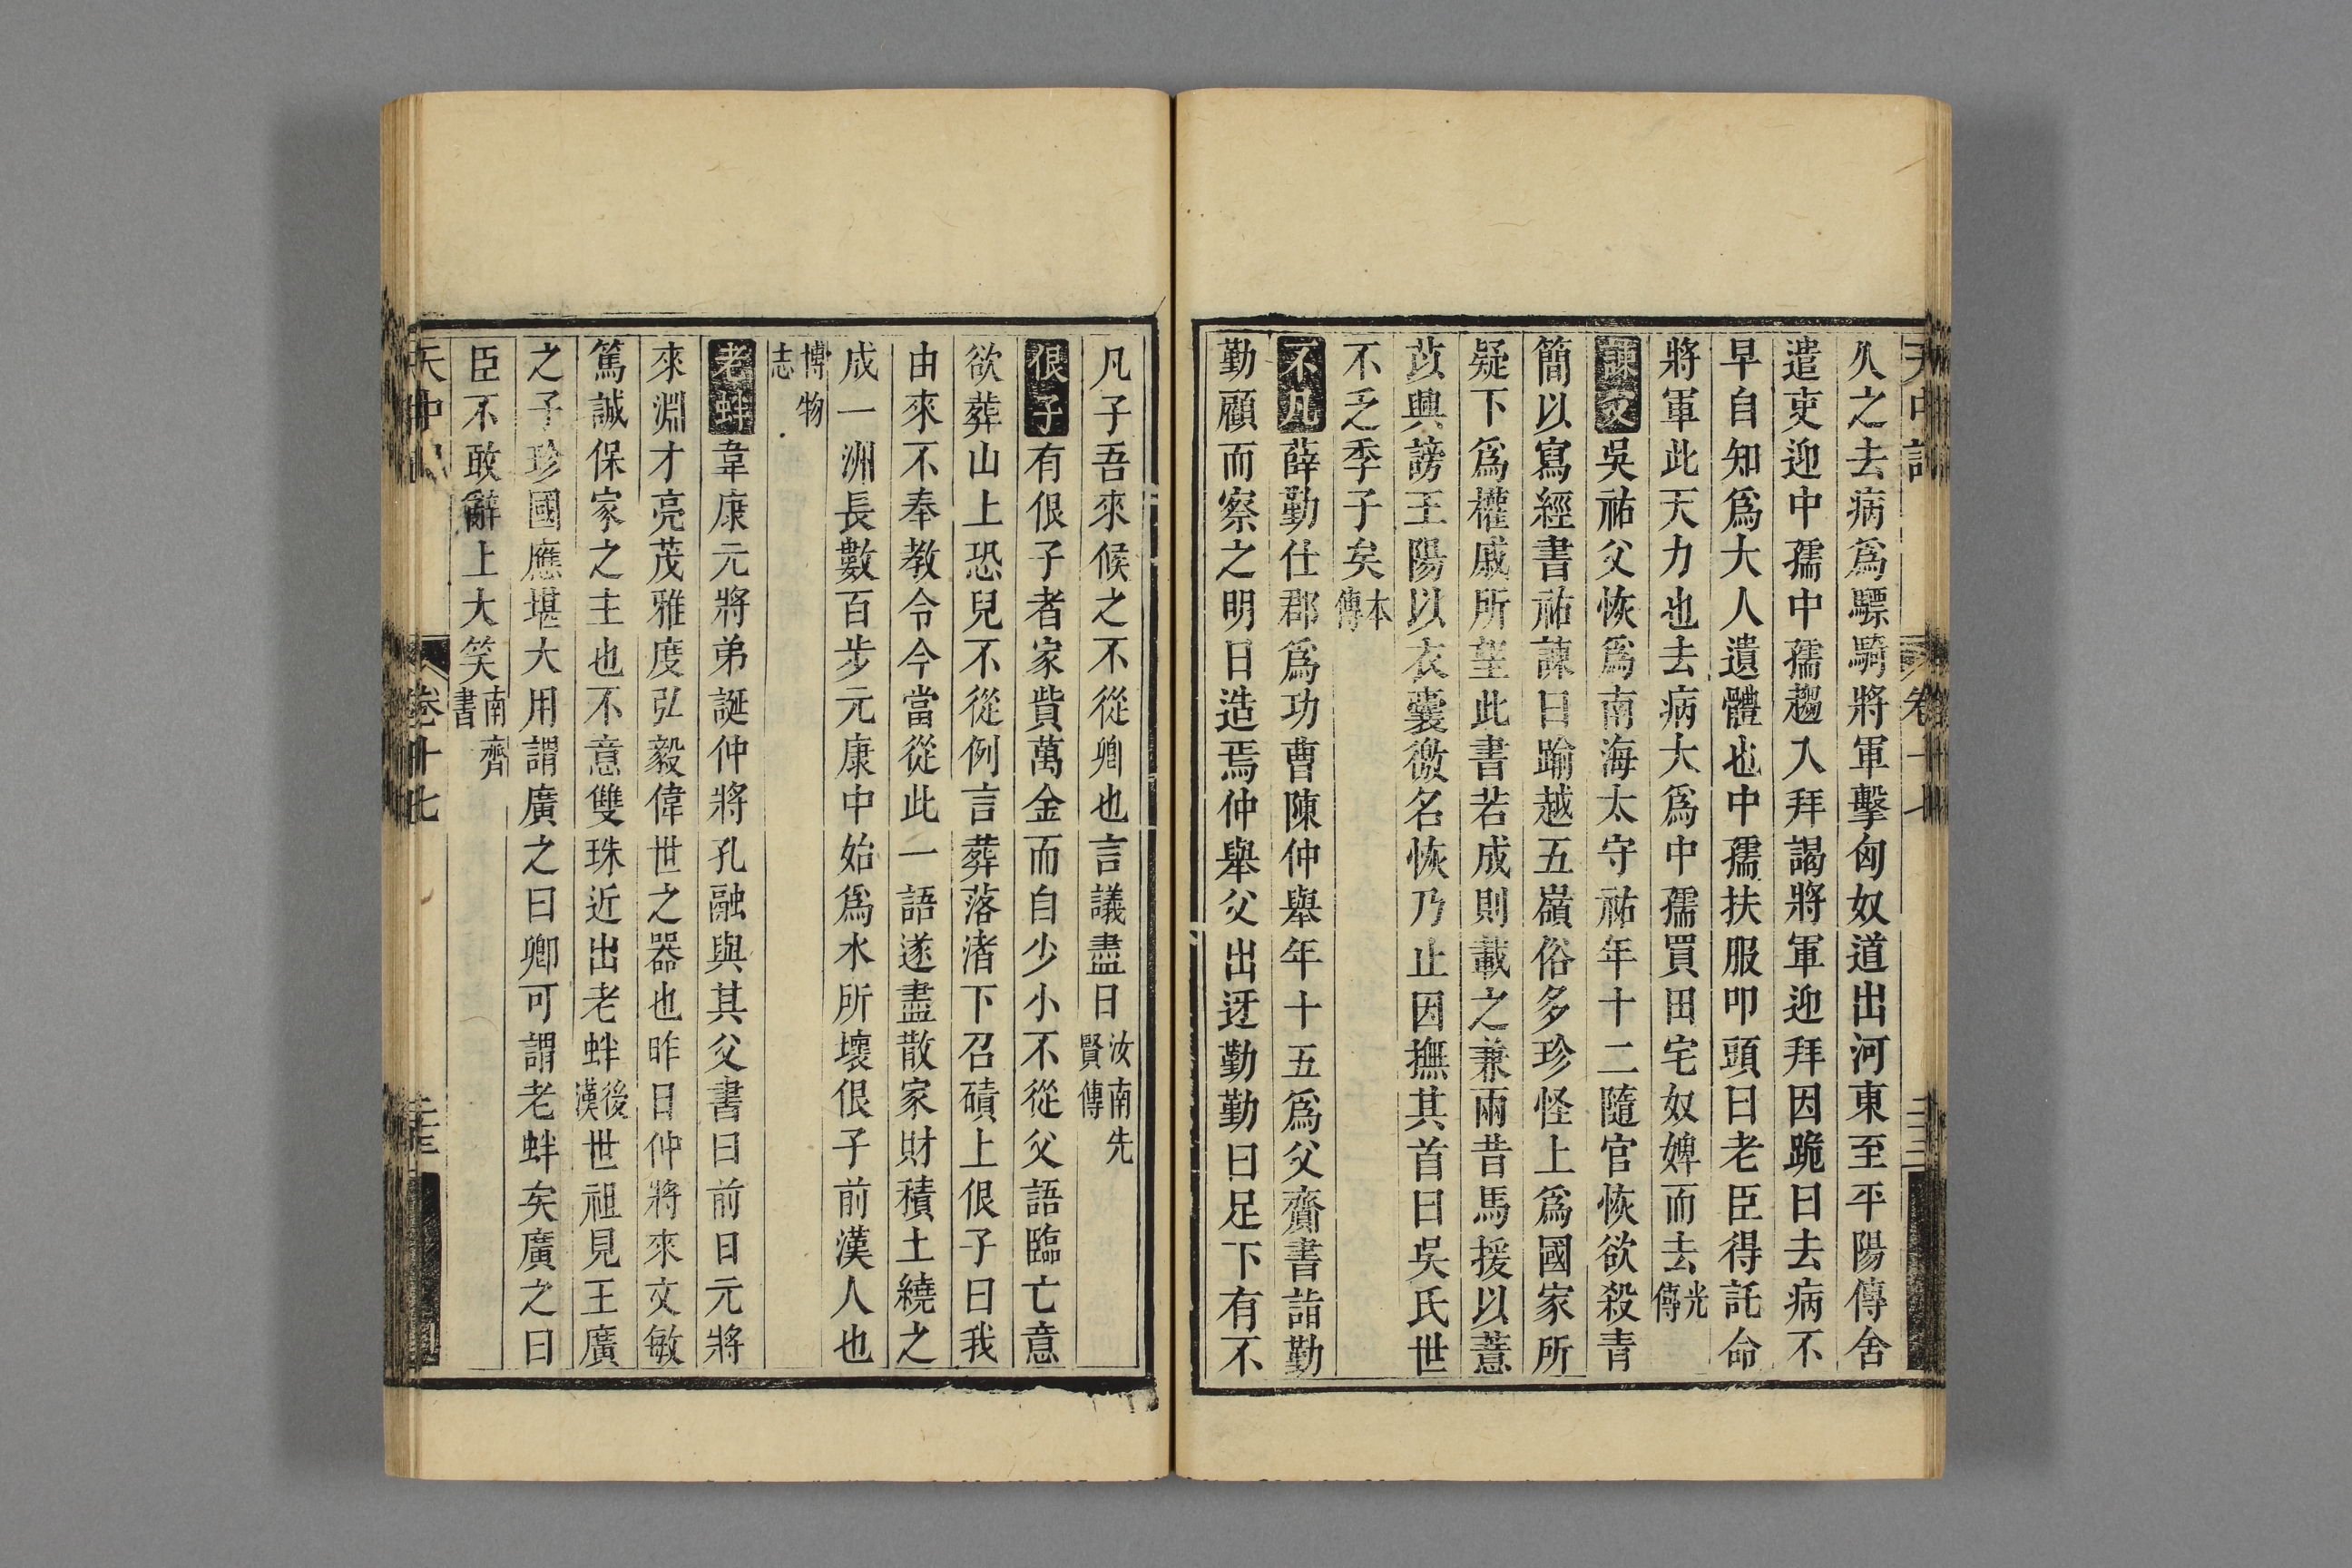 久之去病為驃騎將軍擊匈奴道出河東至平陽傳舍
遣吏迎中孺中孺趨入拜謁將軍迎拜因跪曰去病不
早自知為大人遺體也中孺扶服叩頭曰老臣得託命
將軍此天力也去病大為中孺買田宅奴婢而去光傳
諫父吳祐父恢為南海太守祐年十二隨官恢欲殺青
簡以寫經書祐諫曰踰越五嶺俗多珍怪上為國家所
疑下為權戚所望此書若成則載之兼兩昔馬援以薏
苡興謗王陽以衣囊徼名恢乃止因撫其首曰吳氏世
不乏季子矣本傳
不凡薛勤仕郡為功曹陳仲舉年十五為父齎書詣勤
勤顧而察之明日造焉仲舉父出迓勤勤曰足下有不
凡子吾來候之不從卿也言議盡日汝南先賢傳
佷子有佷子者家貲萬金而自少小不從父語臨亡意
欲葬山上恐兒不從例言葬落渚下召磧上佷子曰我
由來不奉教令今當從此一語遂盡散家財積土繞之
成一洲長數百步元康中始為水所壞佷子前漢人也
博物志
老蚌韋康元將弟誕仲將孔融與其父書曰前日元將
來淵才亮茂雅度弘毅偉世之器也昨日仲將來文敏
篤誠保家之主也不意雙珠近出老蚌後漢世祖見王廣
之子珍國應堪大用謂廣之曰卿可謂老蚌矣廣之曰
臣不敢辭上大笑南齊書
卷十七